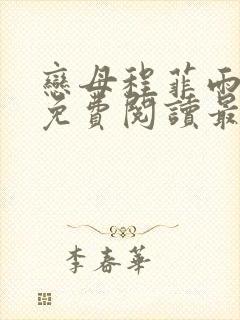 戀母程菲雨
免費閱讀最
李春華